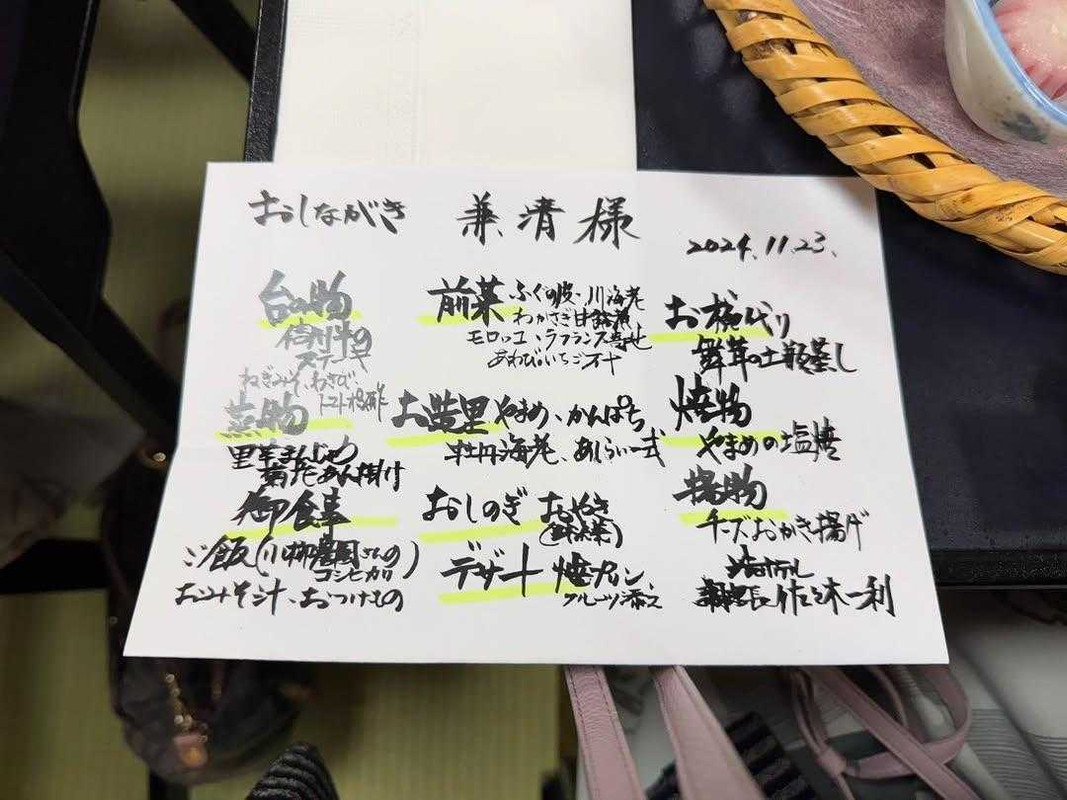 おしながき 兼清様
2024.11.23.
前菜 ふぐの皮・川海老
わかさぎ甘露煮
モロッコ・ラフランス寄せ
あわび・いちご
お椀代り
茸の土瓶蒸し
お造里 やまめ、かんぱち
牡丹海老、あしらい一式
焼物
やまめの塩焼
台の物
信州牛の
ステーキ
ねぎみそ、わさび、
トマト
蒸物
里芋まんじゅう
菊花あん掛け
おしのぎ おやき
(野沢菜)
揚物
チーズおかき揚げ
御食事
ご飯(小柳農園さんの)
コシヒカリ
おみそ汁、おつけもの
デザート 焼プリン、
フルーツ添え
長 佐々木一利